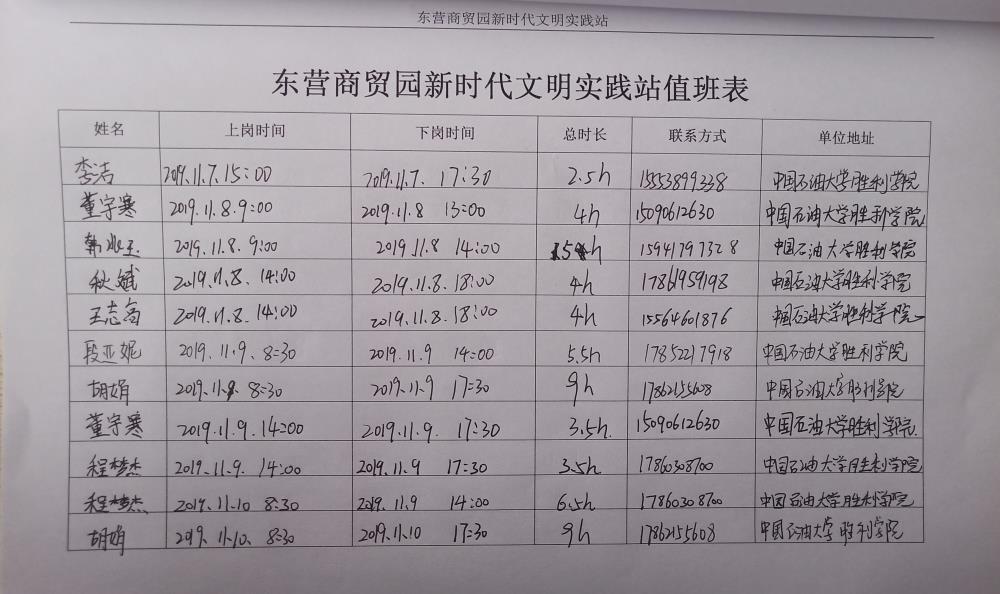 东营商贸园新时代文明实践站
东营商贸园新时代文明实践站值班表
姓名 上岗时间 下岗时间 总时长 联系方式 单位地址
李洁 2019.11.7.15:00 2019.11.7. 17:30 2.5h 15553899338 中国石油大学胜利学院
董宇寒 2019.11.8.9:00 2019.11.8 13:00 4h 15090612630 中国石油大学胜利学院
韩兆玉 2019.11.8.9:00 2019.11.8 14:00 5h 15941797328 中国石油大学胜利学院
秋斌 2019.11.8.14:00 2019.11.8.18:00 4h 17861959198 中国石油大学胜利学院
王志高 2019.11.8.14:00 2019.11.8.18:00 4h 15564601876 中国石油大学胜利学院
段亚妮 2019.11.9.8:30 2019.11.9 14:00 5.5h 17852217918 中国石油大学胜利学院
胡娟 2019.11.9.8:30 2019.11.9 17:30 9h 17862155608 中国石油大学胜利学院
董宇寒 2019.11.9.14:00 2019.11.9. 17:30 3.5h. 15090612630 中国石油大学胜利学院.
程梦杰 2019.11.9.14:00 2019.11.9 17:30 3.5h 17860308700 中国石油大学胜利学院
程梦杰 2019.11.10 8:30 2019.11.9 14:00 6.5h 17860308700 中国石油大学胜利学院
胡娟 2019.11.10. 8:30 2019.11.10 17:30 9h 17862155608 中国石油大学胜利学院